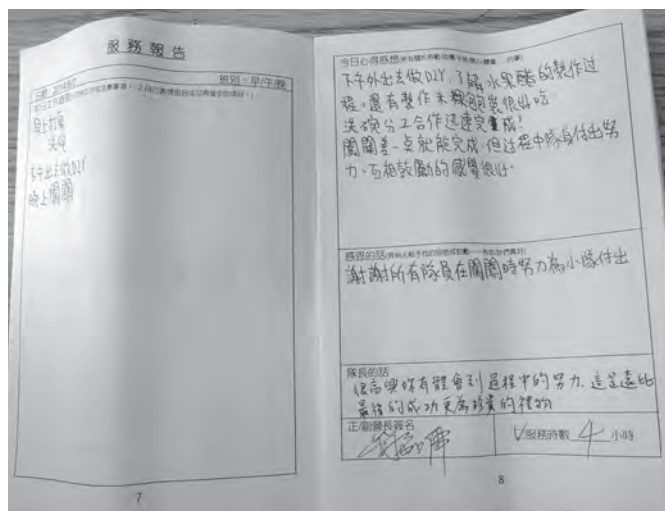 服務報告
日期：2014/8/7
班別：早/午/晚
早上打掃
洗碗
下午出去做DIY
晚上闖關
7
今日心得感想
下午外出去做DIY，了解水果醋的製作过
程。還有製作米糠飽裝很好吃
洗碗分工合作迅速完成！
闖關差一点就能完成，但过程中隊員付出努
力，互相鼓勵的感覺很好。
感恩的話
謝謝所有隊員在闖關時努力為小隊付出
隊長的話
很高興妳有體會到過程中的努力，這是遠比
最後的成功更為珍貴的禮物
正/副隊長簽名
V服務時數 4 小時
8